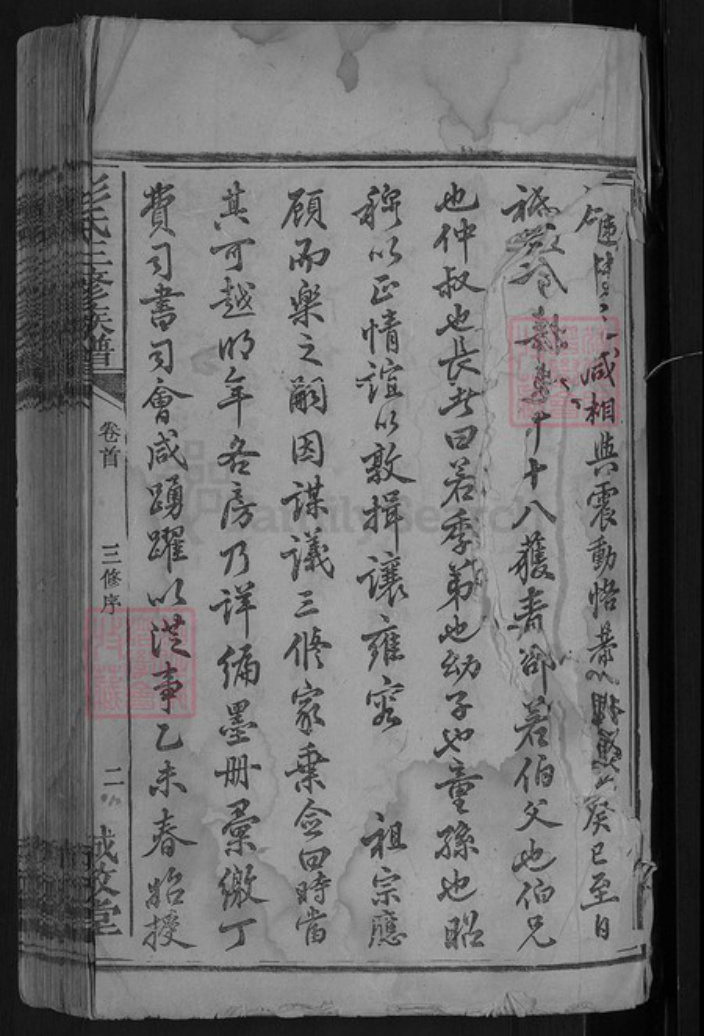 減相與震動恪
癸巳至日
祗 十八獲奔卻若伯父也伯兄
也仲叔也長者曰若季弟也幼子也童孫也昭
穆以正情誼以敦揖讓雍容 祖宗應
顧而樂之嗣因謀議三修家乘僉曰時當
其可越明年各房乃詳編墨册彙繳丁
費司書司會咸踴躍以從事乙未春始授
彭氏三修族譜 卷首 三修序 二 敦堂
FamilySearch